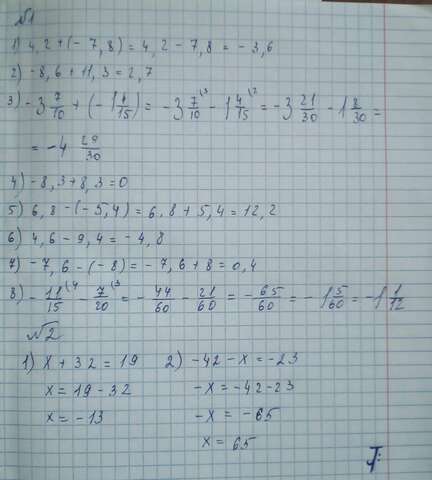 №1
1) 4,2+(-7,8)=4,2-7,8=-3,6
2) -8,6+11,3=2,7
3) -3 7/10 + (-1 4/15) = -3 7/10 \3 - 1 4/15 \2 = -3 21/30 - 1 8/30 =
= -4 29/30
4) -8,3+8,3=0
5) 6,8-(-5,4)=6,8+5,4=12,2
6) 4,6-9,4=-4,8
7) -7,6-(-8)=-7,6+8=0,4
8) -11/15 \4 - 7/20 \3 = -44/60 - 21/60 = -65/60 = -1 5/60 = -1 1/12
№2
1) x+32=19 2) -42-x=-23
x=19-32 -x=-42-23
x=-13 -x=-65
x=65